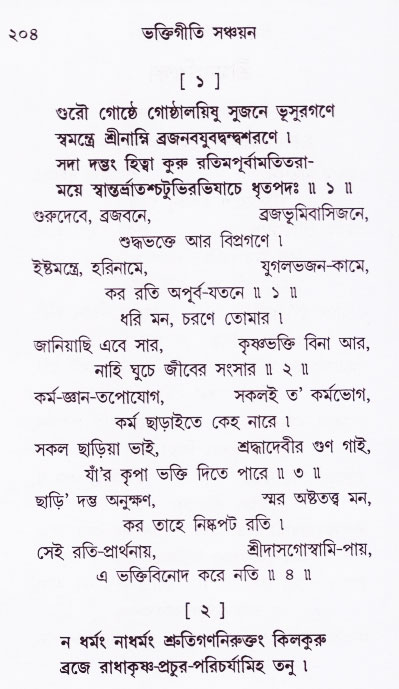 ২০৪ ভক্তিগীতি সঞ্চয়ন
[ ১ ]
গুরৌ গোষ্ঠে গোষ্ঠালয়িষু সুজনে ভূসুরগণে
স্বমন্ত্রে শ্রীনাম্নি ব্রজনবযুবদ্বন্দ্বশরণে ।
সদা দম্ভং হিত্বা কুরু রতিমপূর্বামতিতরা-
ময়ে স্বান্তর্ভ্রাতশ্চটুভিরভিযাচে ধৃতপদঃ ॥ ১ ॥
গুরুদেবে, ব্রজবনে, ব্রজভূমিবাসিজনে,
শুদ্ধভক্তে আর বিপ্রগণে ।
ইষ্টমন্ত্রে, হরিনামে, যুগলভজন-কামে,
কর রতি অপূর্ব-যতনে ॥ ১ ॥
ধরি মন, চরণে তোমার ।
জানিয়াছি এবে সার, কৃষ্ণভক্তি বিনা আর,
নাহি ঘুচে জীবের সংসার ॥ ২ ॥
কর্ম-জ্ঞান-তপোযোগ, সকলই ত’ কর্মভোগ,
কর্ম ছাড়াইতে কেহ নারে ।
সকল ছাড়িয়া ভাই, শ্রদ্ধাদেবীর গুণ গাই,
যাঁ’র কৃপা ভক্তি দিতে পারে ॥ ৩ ॥
ছাড়ি’ দম্ভ অনুক্ষণ, স্মর অষ্টতত্ত্ব মন,
কর তাহে নিষ্কপট রতি ।
সেই রতি-প্রার্থনায়, শ্রীদাসগোস্বামি-পায়,
এ ভক্তিবিনোদ করে নতি ॥ ৪ ॥
[ ২ ]
ন ধর্মং নাধর্মং শ্রুতিগণনিরুক্তং কিলকুরু
ব্রজে রাধাকৃষ্ণ-প্রচুর-পরিচর্যামিহ তনু ।